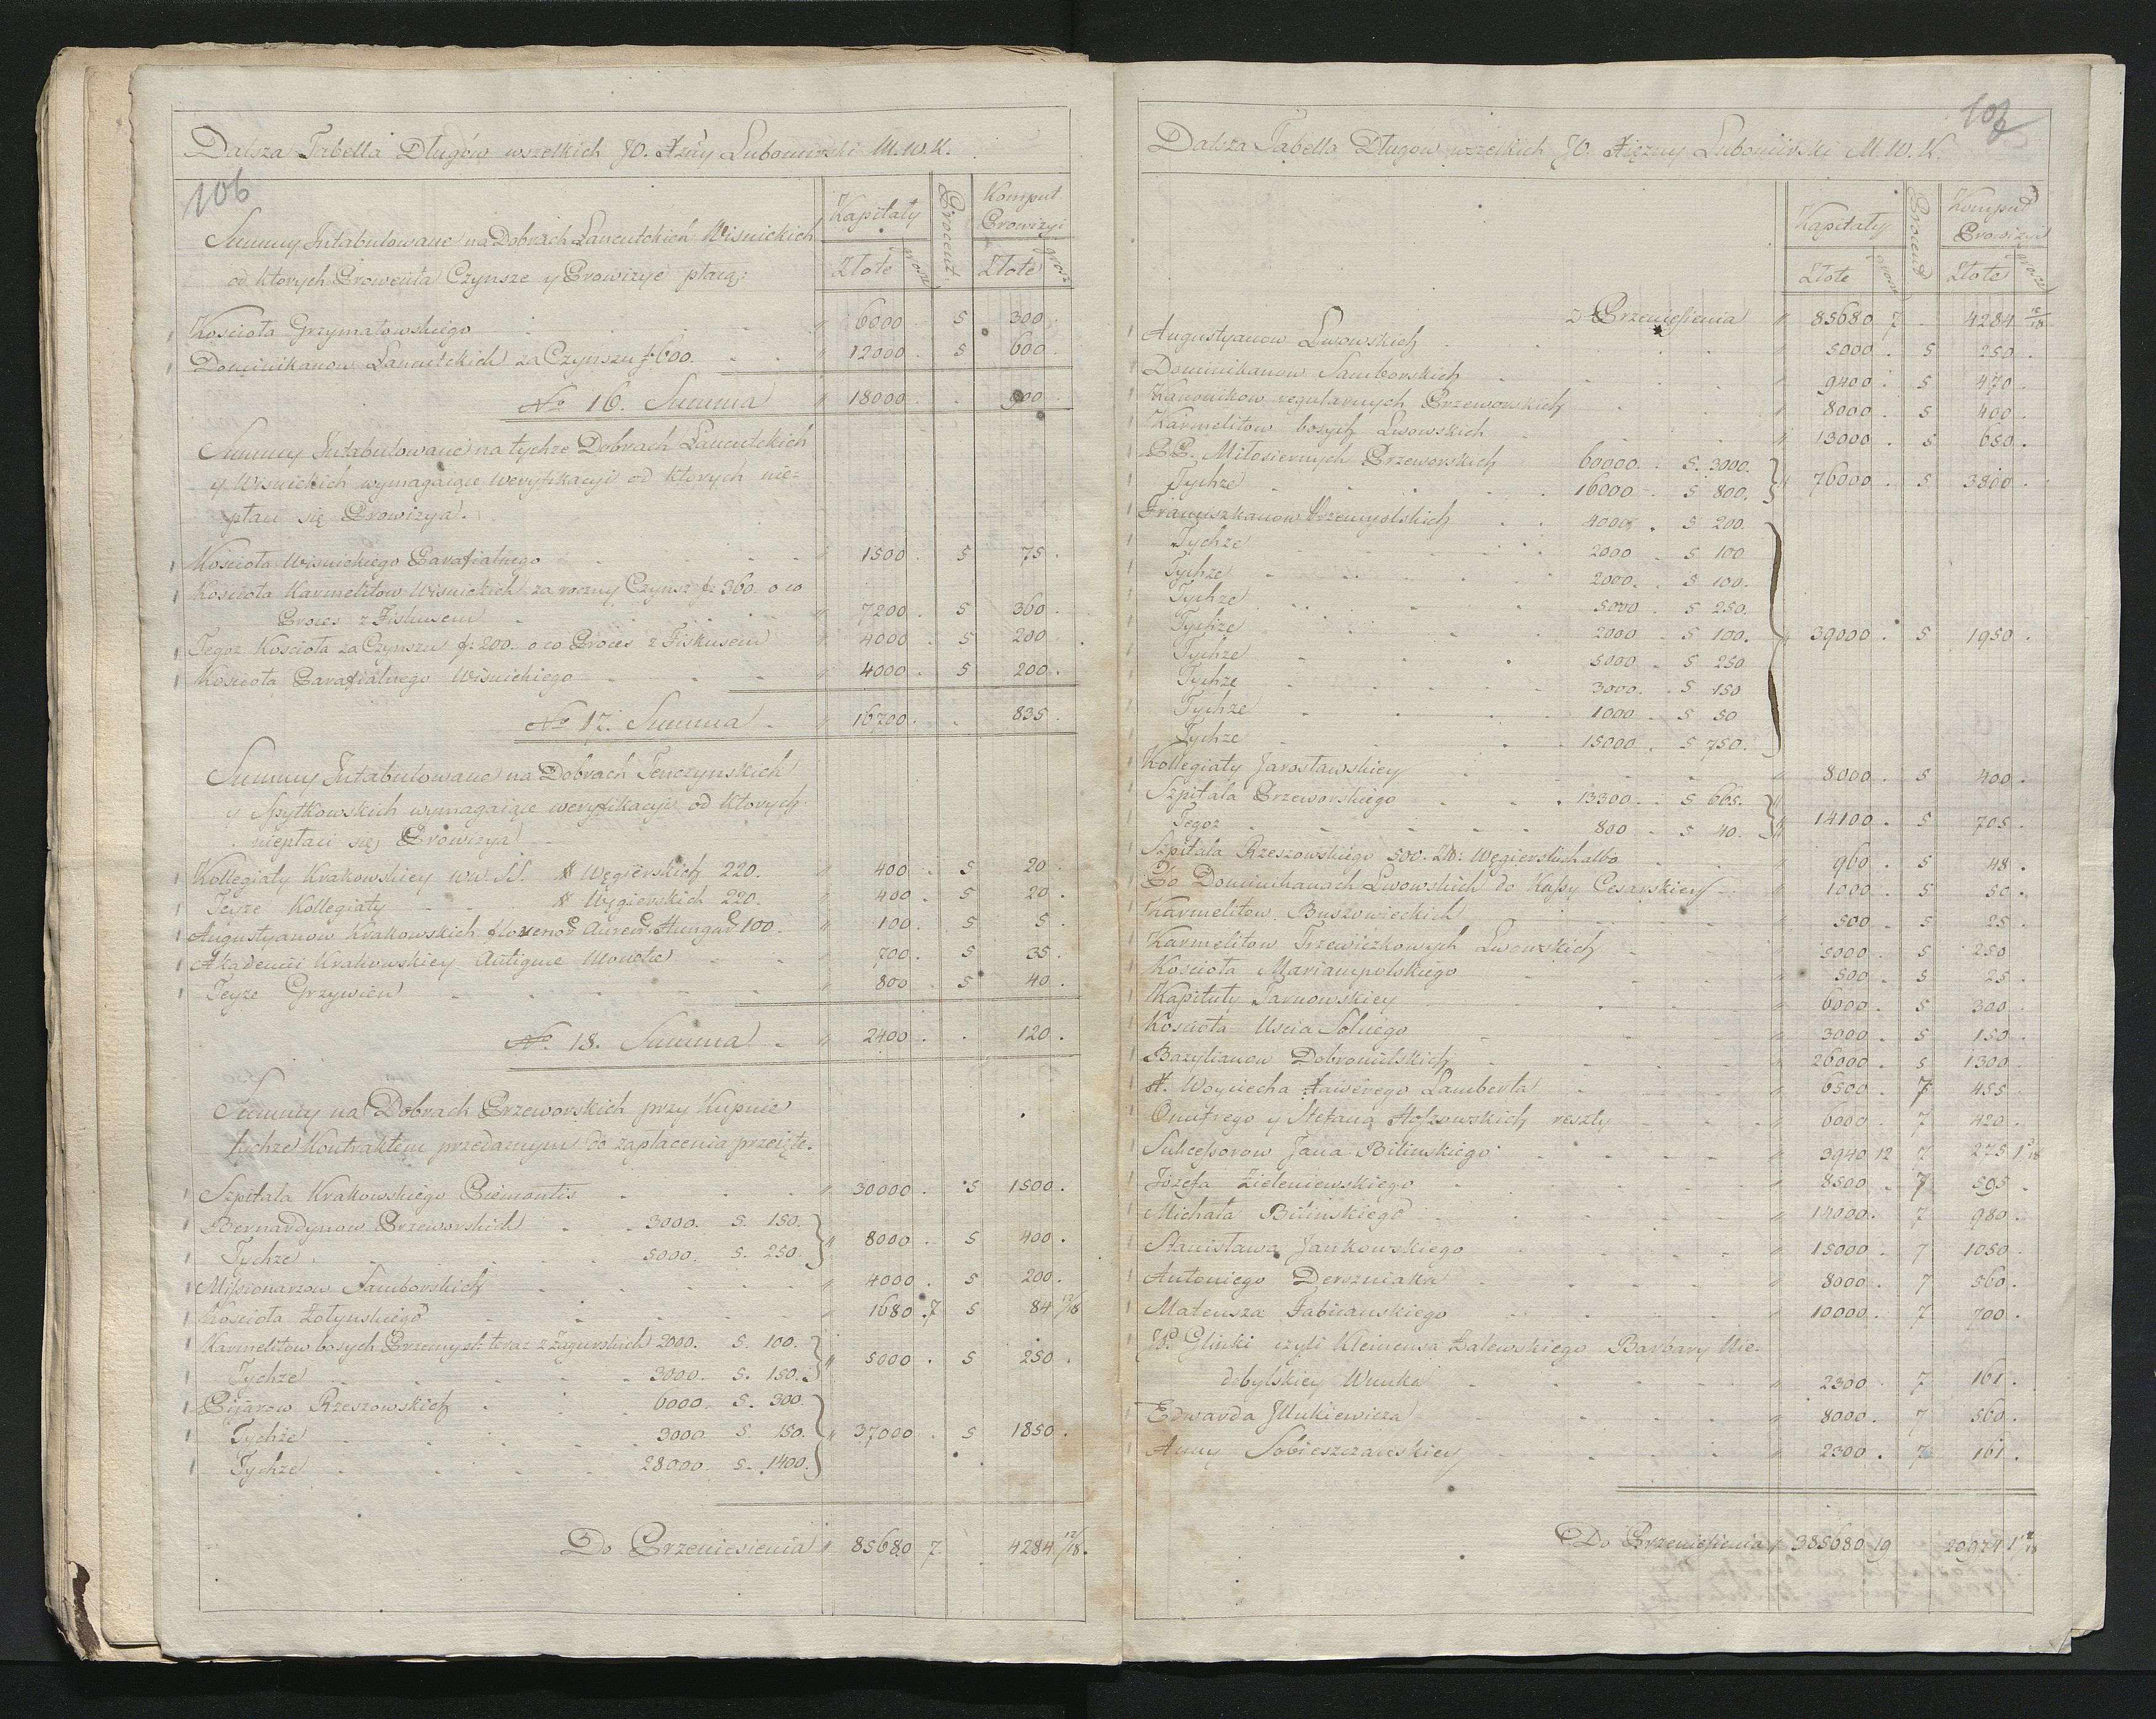 Dalsza Tabella Długów wszelkich JO. Xżny Lubomirski M.W.K.
106
Summy Intabulowane na Dobrach Lancutckich Wisnickich
od ktorych Prowenta Czynsze y Prowizye płacą:
Kapitały Procent Komput Prowizyi
Złote grosze Złote grosze
Koscioła Grzymałowskiego 6000 . 5 300 .
Dominikanow Lancutckich za Czynszu f. 600. 12000 . 5 600 .
No 16. Summa 18000 . . 900 .
Summy Intabulowane na tychze Dobrach Lancutckich
y Wisnickich wymagaiące weryfikacyi od ktorych nie-
płaci się Prowizya.
Kościoła Wisnickiego Parafialnego 1500 . 5 75 .
Kościoła Karmelitow Wisnickich za roczny Czynsz f. 360. o co
Proces z Fiskusem 7200 . 5 360 .
Tegoz Kościoła za Czynszu f. 200. o co Proces z Fiskusem 4000 . 5 200 .
Kościoła Parafialnego Wiśnickiego 4000 . 5 200 .
No 17. Summa 16700 . . 835 .
Summy Intabulowane na Dobrach Tenczynskich
y Spytkowskich wymagaiące weryfikacyi od ktorych
niepłaci się Prowizya
Kollegiaty Krakowskiey WW SS. # Węgierskich 220. 400 . 5 20 .
Teyze Kollegiaty # Węgierskich 220. 400 . 5 20 .
Augustyanow Krakowskich florenor Aureor. Hungar 100. 100 . 5 5 .
Akademii Krakowskiey Antique Monete 700 . 5 35 .
Teyze Grzywien 800 . 5 40 .
No 18. Summa 2400 . . 120 .
Summy na Dobrach Przeworskich przy Kupnie
tychze Kontraktem przedaznym do zapłacenia przeięte.
Szpitala Krakowskiego Piemontis 30000 . 5 1500 .
Bernardynow Przeworskich 3000. 5. 150.
Tychze 5000. 5. 250. 8000 . 5 400 .
Missionarzow Samborskich 4000 . 5 200 .
Kosciola Zołynskiego 1680 . 7 5 84 12/18
Karmelitow bosych Przemysl: teraz z Zagurskich 2000. 5. 100.
Tychze 3000. 5. 150. 5000 . 5 250 .
Pijarow Rzeszowskich 6000. 5. 300.
Tychze 3000. 5. 150. 37000 . 5 1850 .
Tychze 28000. 5. 1400.
Do Przeniesienia 85680 7. 4284 12/18.
107
Dalsza Tabella Długów wszelkich JO. Xiężny Lubomirski M.W.K.
Kapitały Procent Komput Prowizyi
Złote grosze Złote grosze
z Przeniesienia 85680 7 . 4284 12/18
Augustyanow Lwowskich 5000 . 5 250 .
Dominikanow Samborskich 9400 . 5 470 .
Kanonikow regularnych Przeworskich 8000 . 5 400 .
Karmelitow bosych Lwowskich 13000 . 5 650 .
PP. Miłosiernych Przeworskich 60000. 5. 3000.
Tychze 16000 . 5 800. 76000 . 5 3800 .
Franciszkanow Przemyslskich 4000 . 5 200.
Tychze 2000 . 5 100
Tychze 2000. . 5 100.
Tychze 5000 . 5 250.
Tychze 2000 . 5 100. 39000 . 5 1950 .
Tychze 5000 . 5 250
Tychze 3000. . 5 150
Tychze 1000 . 5 50
Tychze 15000 . 5 750.
Kollegiaty Jarosławskiey 8000 . 5 400 .
Szpitala Przeworskiego 13300 . 5 665.
Tegoz 800 . 5 40. 14100 . 5 705 .
Szpitala Rzeszowskiego 500. Zło: Węgierskich albo 960 . 5 48 .
Po Dominikanach Lwowskich do Kassy Cesarskiey 1000 . 5 50 .
Karmelitow Buszowieckich 500 . 5 25 .
Karmelitow Trzewiczkowych Lwowskich 5000 . 5 250
Kosciola Mariampolskiego 500 . 5 25 .
Kapituły Tarnowskiey 6000 . 5 300
Kosciola Uscia Solnego 3000 . 5 150 .
Bazylianow Dobromilskich 26000 . 5 1300 .
X. Woyciecha Xawerego Lamberta 6500 . 7 455
Onufrego y Stefana Hoszowskich reszty 6000 . 7 420 .
Sukcessorow Jana Bilinskiego 3940 12 7 275 1 5/18
Józefa Zieleniewskiego 8500 . 7 595 .
Michała Bilinskiego 14000 . 7 980 .
Stanisława Jankowskiego 15000 . 7 1050 .
Antoniego Derszniaka 8000 . 7 560 .
Mateusza Fabiianskiego 10000 . 7 700 .
JP. Glinki czyli Klemensa Zalewskiego Barbary Nie-
dobylskiey Wnuka 2300 . 7 161 .
Edwarda Jllukiewicza 8000 . 7 560 .
Anny Sobieszczanskiey 2300 . 7 161 .
Do Przeniesienia 385680 19 20974 1